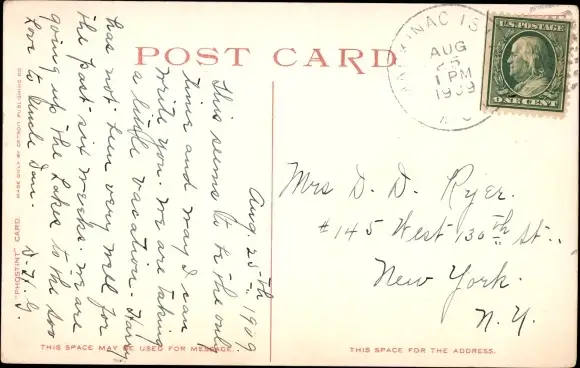 POST CARD
MACKINAC IS
AUG
25
1 PM
1909
U.S. POSTAGE
ONE CENT
Aug. 25th 1909
This seems to be the only
time and way I can
write you. We are taking
a little vacation. Harry
has not been very well for
the past six weeks. We are
going up the Lakes to the Soo
Love to Uncle Dan. D. H. G.
Mrs D. D. Ryer.
#145 West 130th St.
New York.
N. Y.
"PHOSTINT" CARD. MADE ONLY BY DETROIT PUBLISHING CO.
THIS SPACE MAY BE USED FOR MESSAGE.
THIS SPACE FOR THE ADDRESS.